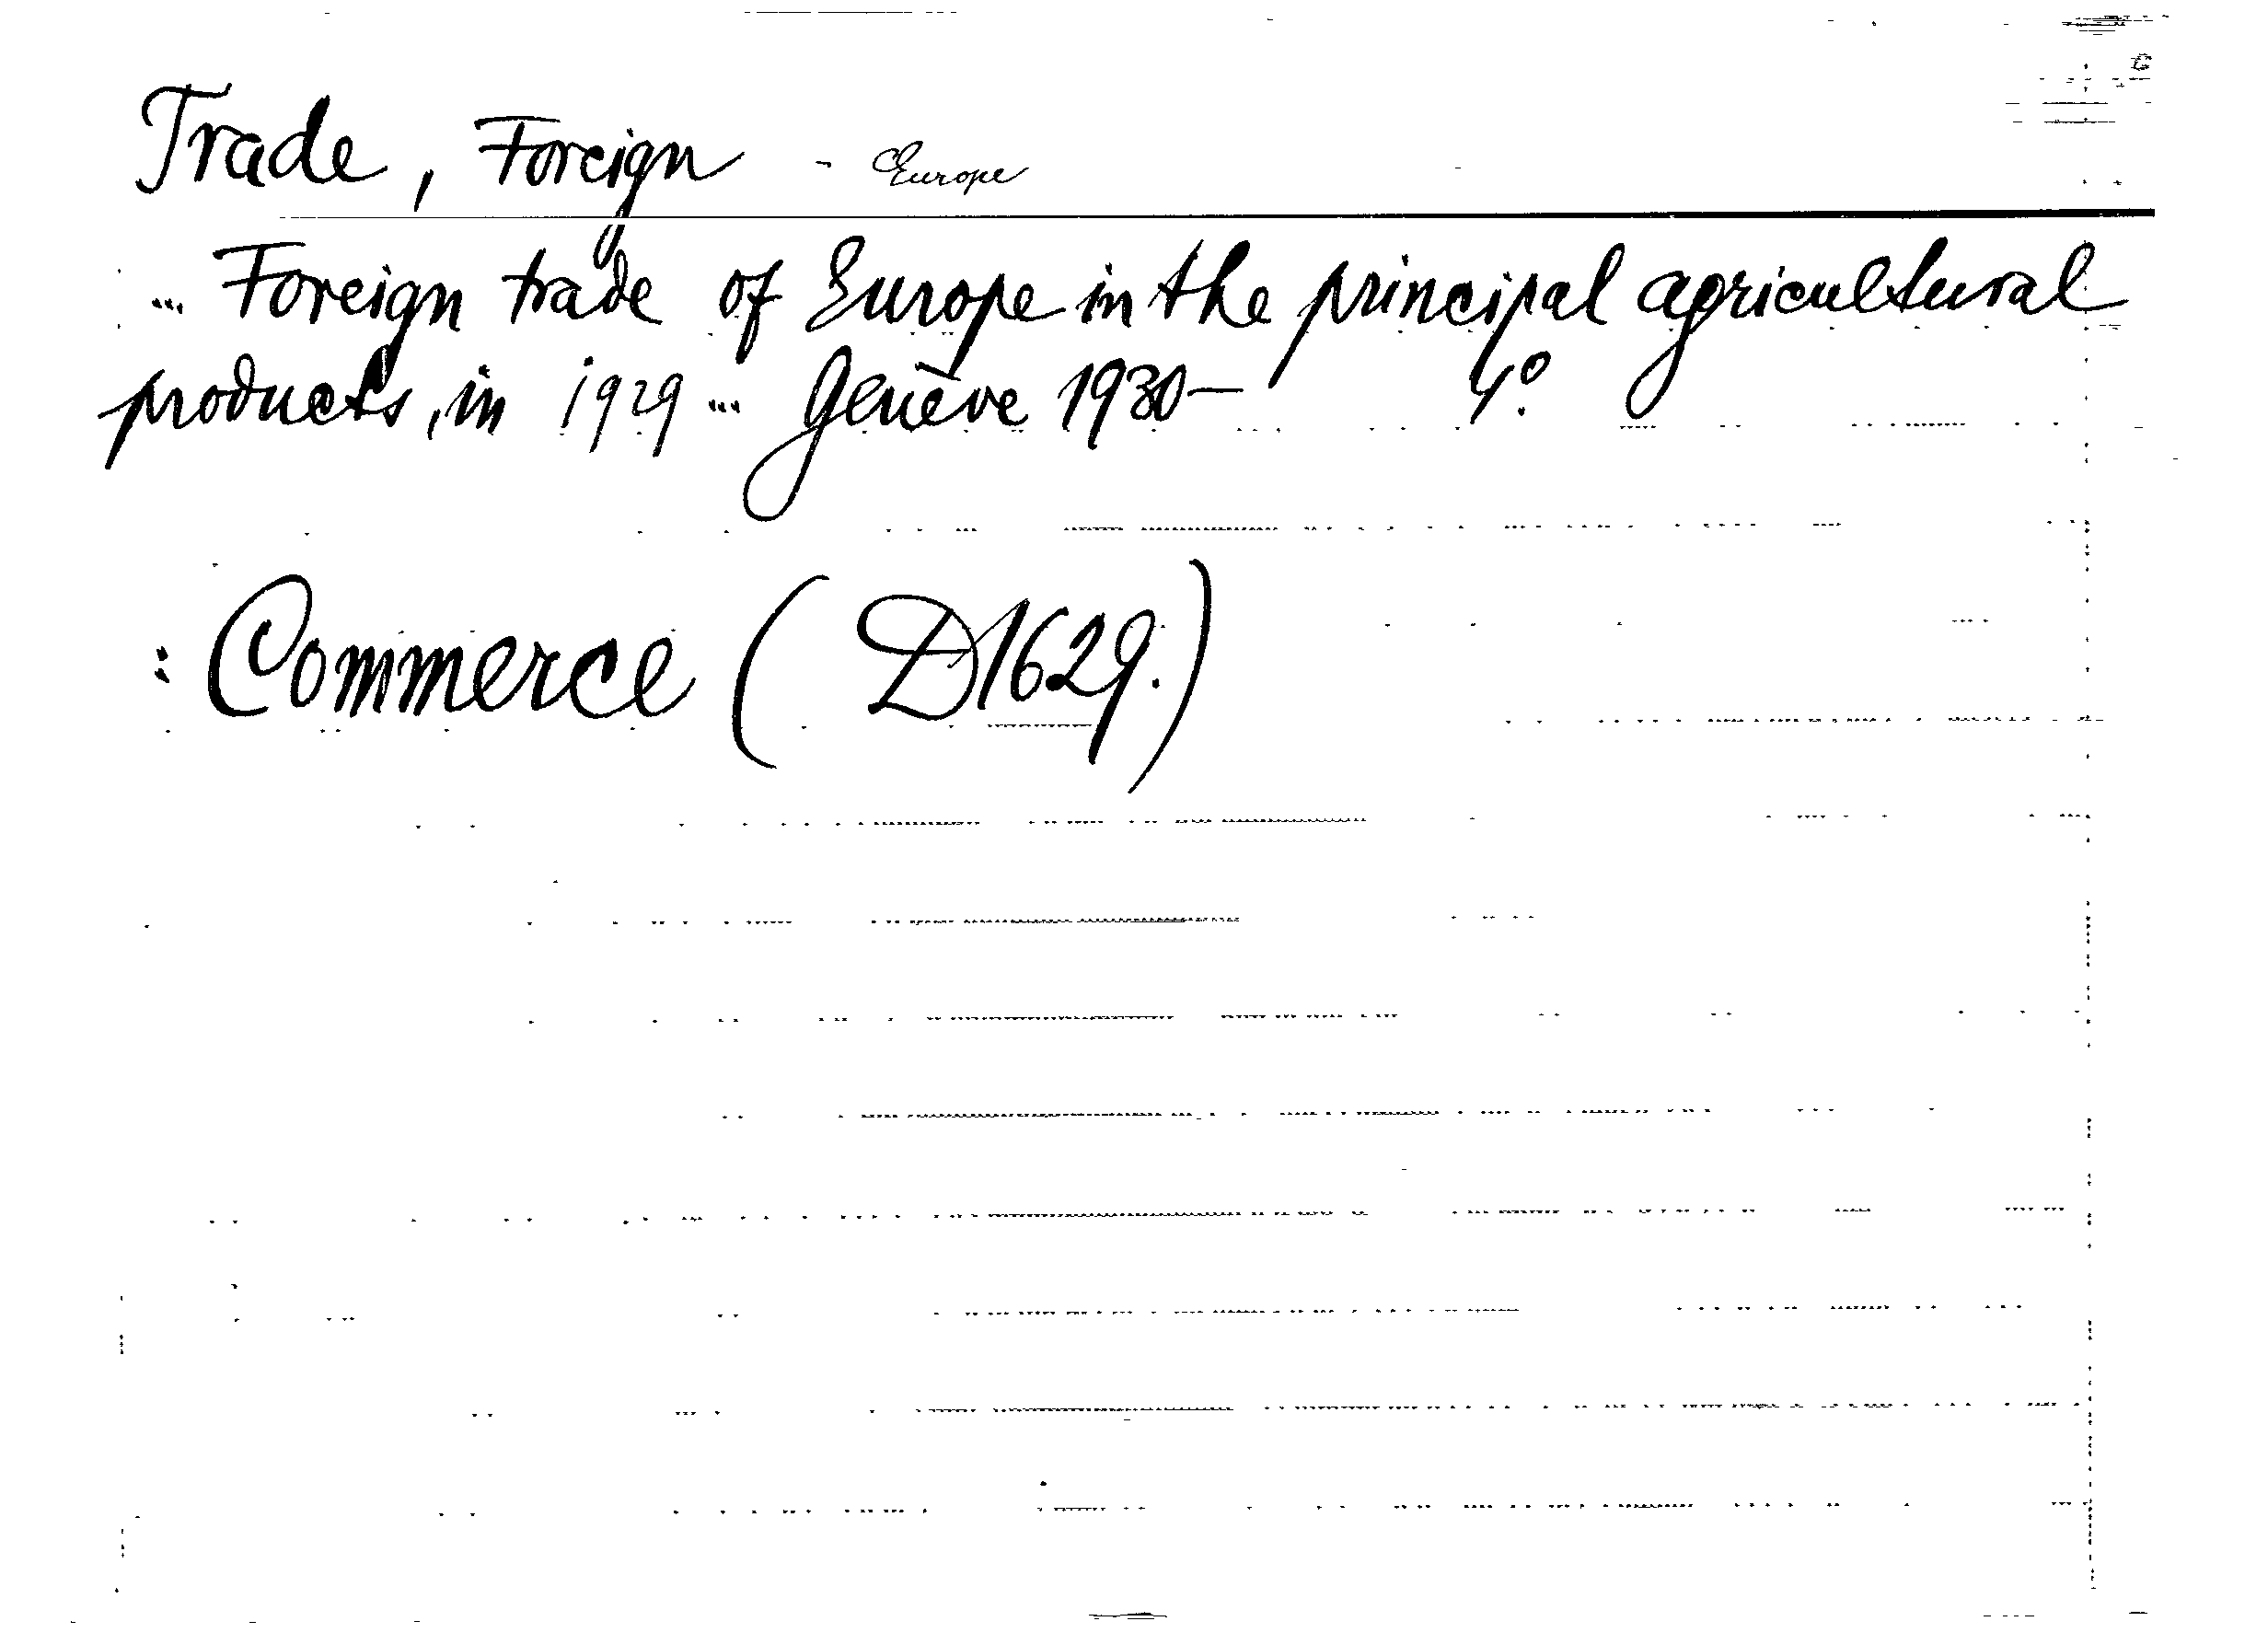 Trade, Foreign - Europe
... Foreign trade of Europe in the principal agricultural
products, in 1929 ... Genève 1930- 4º.
: Commerce ( D1629.)